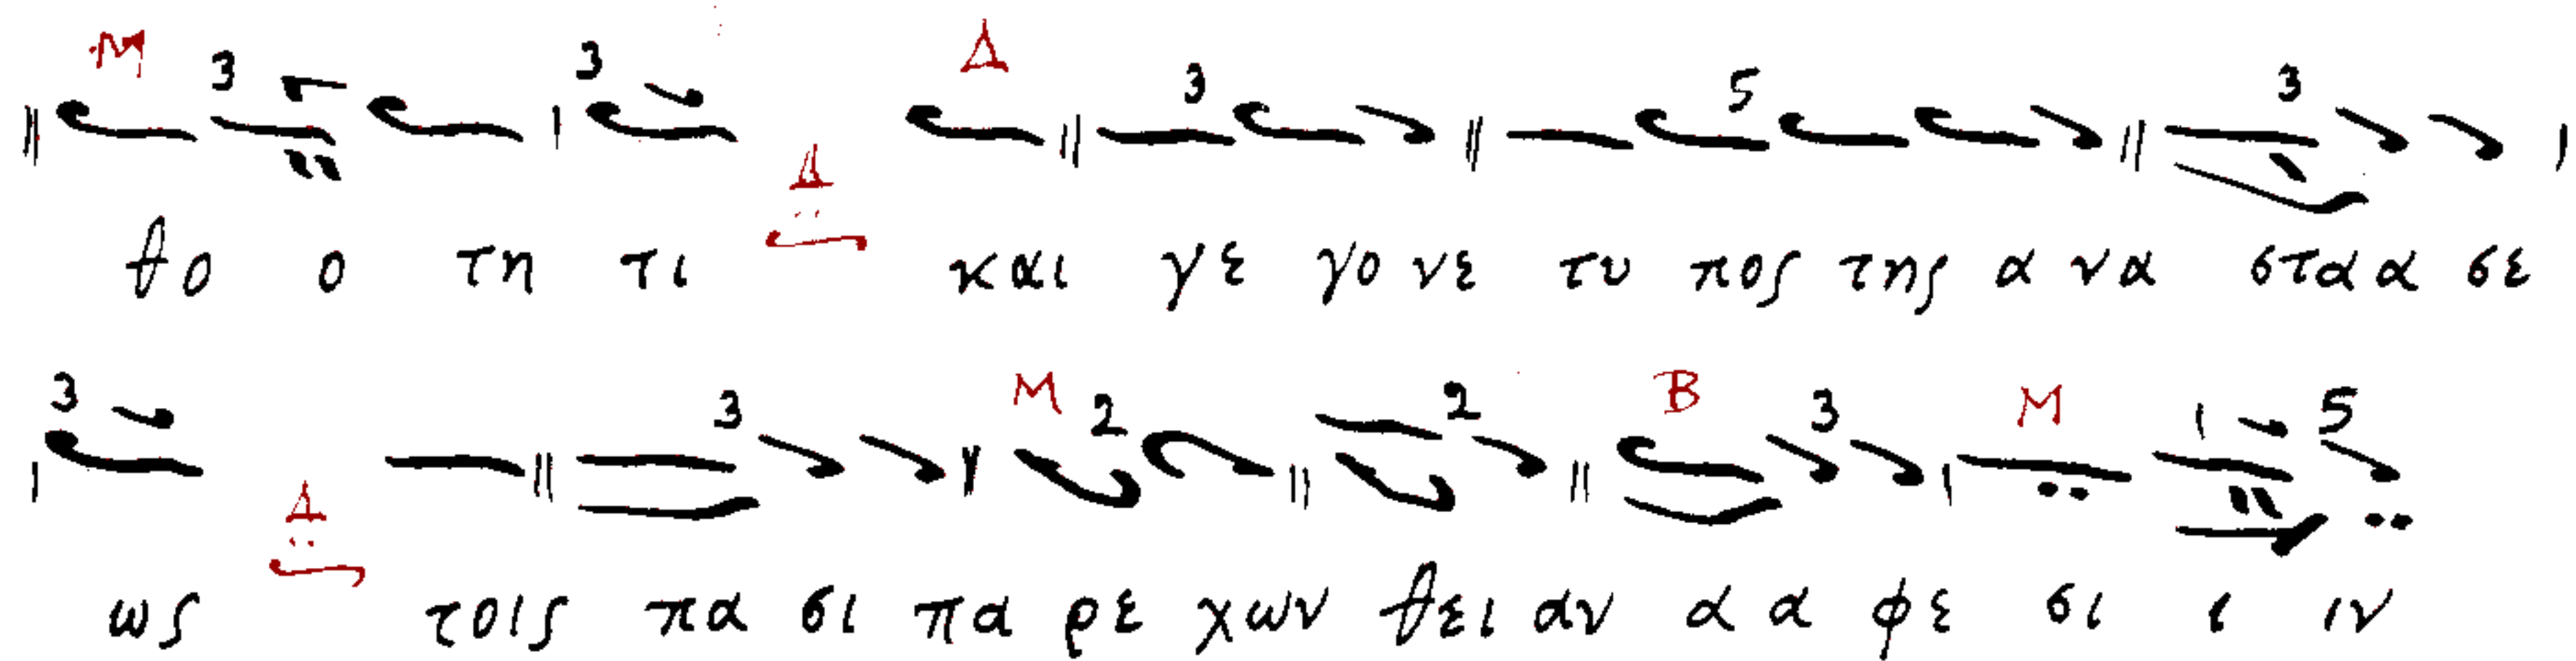 Μ 3 3 Δ 3 5 3
Δ
θο ο τη τι και γε γο νε τυ πος της α να στα α σε
3 3 Μ 2 2 Β 3 Μ 5
Δ
ως τοις πα σι πα ρε χων θει αν α α φε σι ι ιν